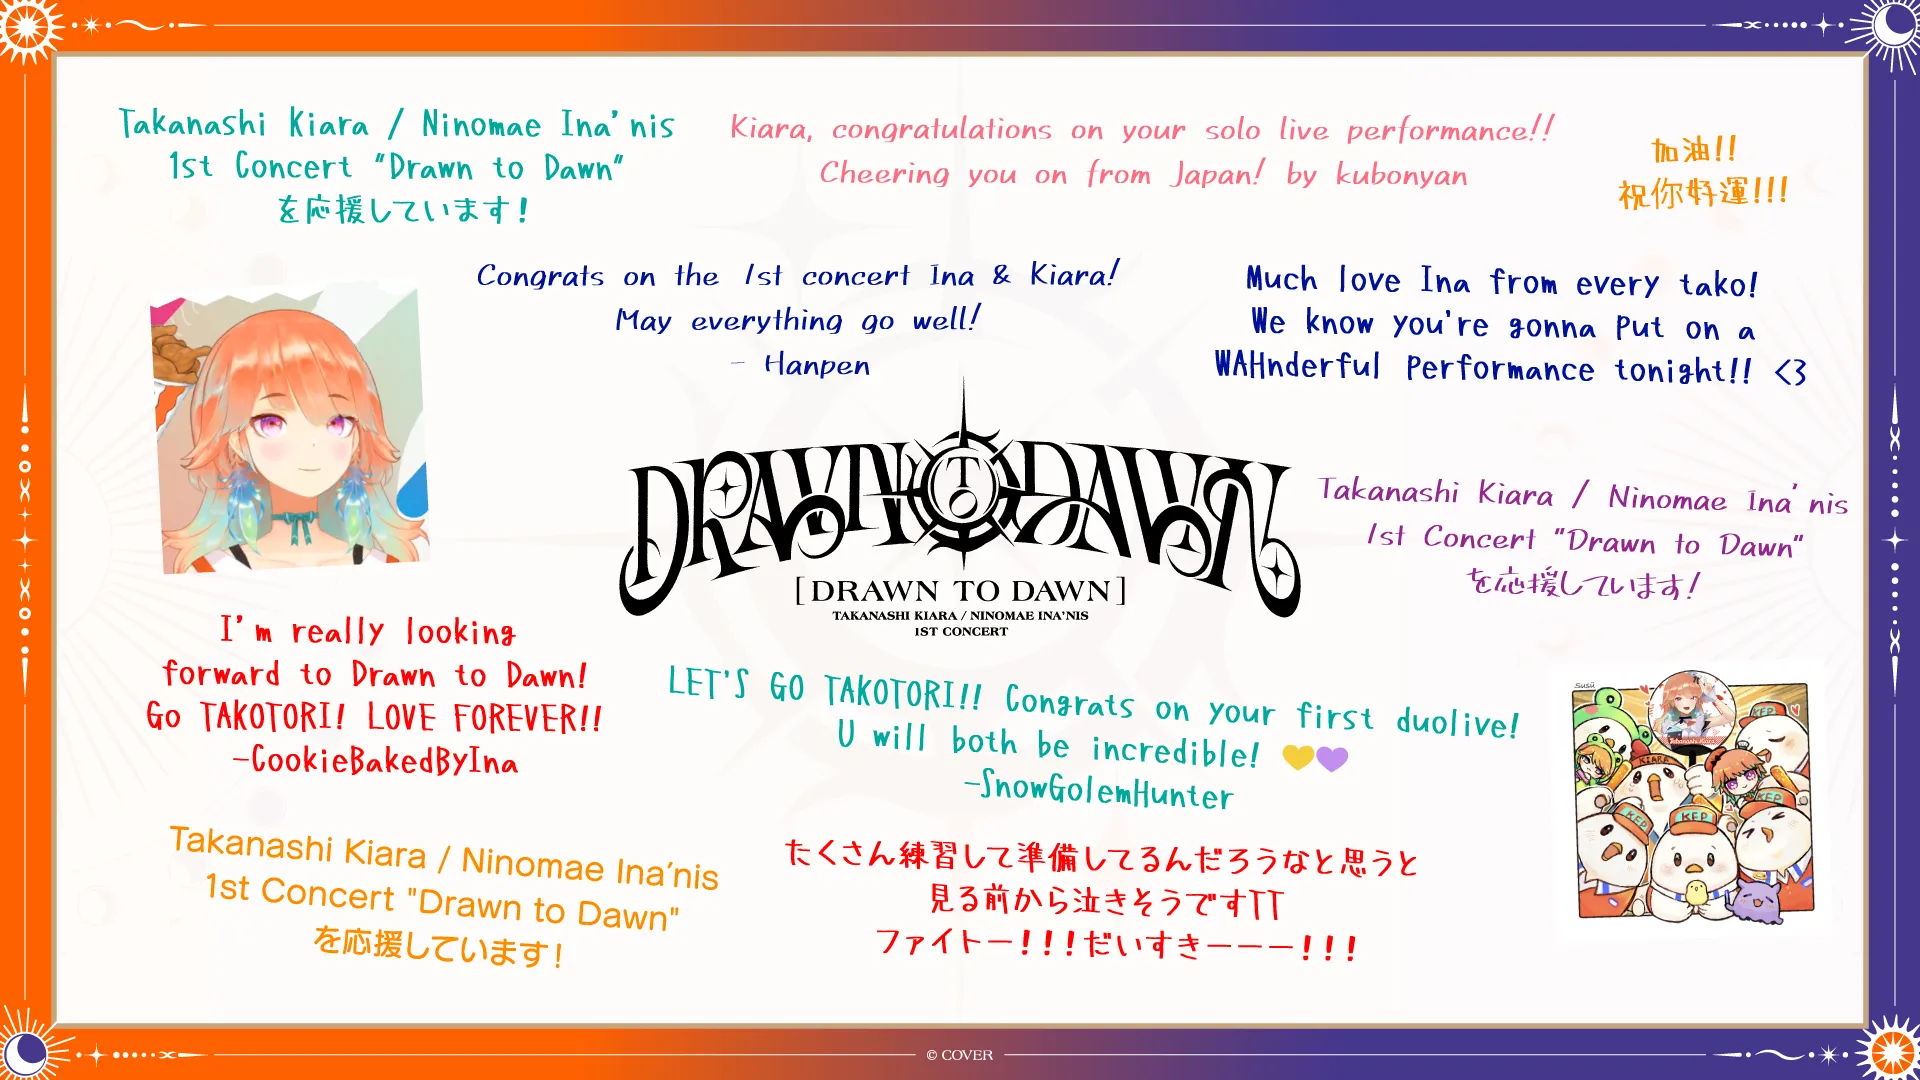 Takanashi Kiara / Ninomae Ina'nis
1st Concert "Drawn to Dawn"
を応援しています!
Kiara, congratulations on your solo live performance!!
Cheering you on from Japan! by kubonyan
加油!!
祝你好運!!!
Congrats on the 1st concert Ina & Kiara!
May everything go well!
- Hanpen
Much love Ina from every tako!
We know you're gonna put on a
WAHnderful performance tonight!! <3
DRAWN TO DAWN
[DRAWN TO DAWN]
TAKANASHI KIARA / NINOMAE INA'NIS
1ST CONCERT
Takanashi Kiara / Ninomae Ina'nis
1st Concert "Drawn to Dawn"
を応援しています!
I'm really looking
forward to Drawn to Dawn!
Go TAKOTORI! LOVE FOREVER!!
-CookieBakedByIna
LET'S GO TAKOTORI!! Congrats on your first duolive!
U will both be incredible! 💛💜
-SnowGolemHunter
Susü
KEP
Takanashi Kiara
KIARA
KEP
KEP
KEP
Takanashi Kiara / Ninomae Ina'nis
1st Concert "Drawn to Dawn"
を応援しています!
たくさん練習して準備してるんだろうなと思うと
見る前から泣きそうですTT
ファイトー!!!だいすきーーー!!!
© COVER